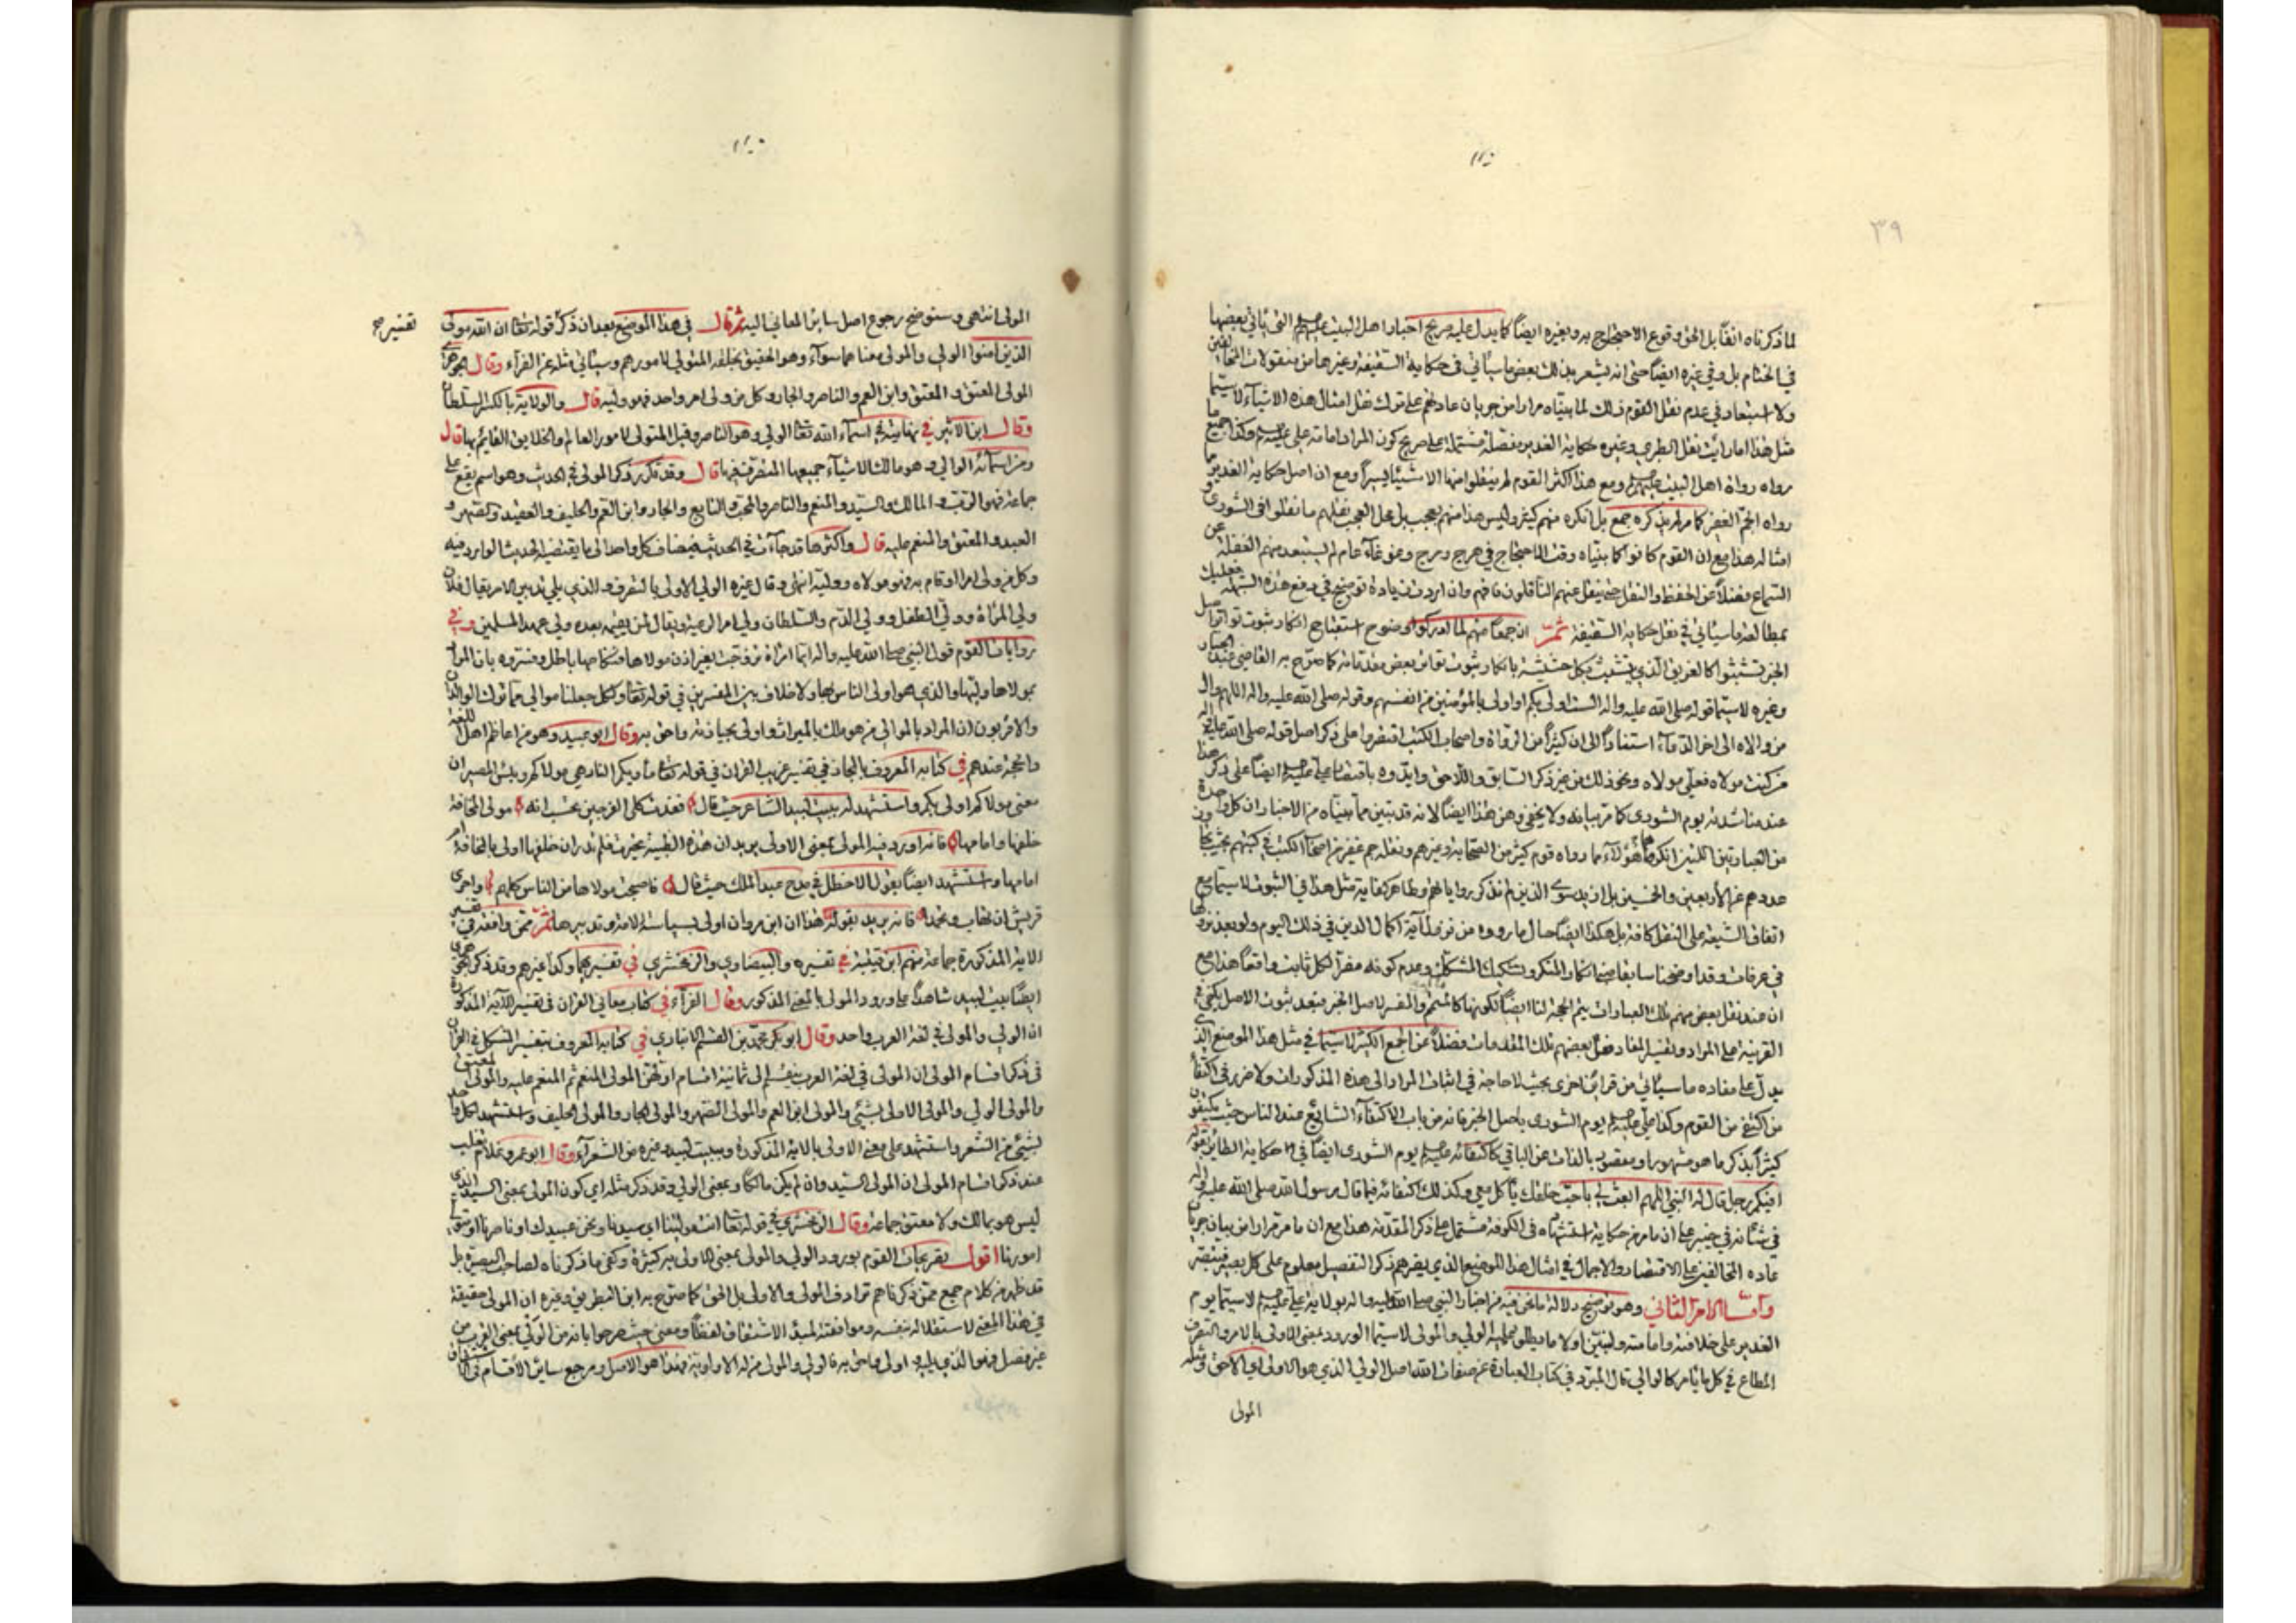 ٣٩
لما ذكرناه انفا بل الحق وقوع الاحتجاج به وبغيره ايضا كما يدل عليه صريح اخبار اهل البيت عليهم التى يأتي بعضها
في الختام بل وفي غيره ايضا حتى انه يشعر بذلك بعض ما سيأتي في حكاية السقيفة وغيرها من منقولات
ولا استبعاد في عدم نقل القوم ذلك لما بيناه مرارا من جريان عادتهم على ترك نقل امثال هذه الاشياء لا سيما
مثل هذا اما رايت نقل الطبري وغيره حكاية الغدير مفصلة مشتملة على صريح كون المراد امامة علي وكذا جميع ما
رواه رواة اهل البيت ومع هذا اكثر القوم لم ينقلوا منها الا شيئا يسيرا ومع ان اصل حكاية الغدير مما
رواه الجم الغفير كما مر لم يذكره جمع بل انكره منهم كثير وليس هذا منهم بعجب بل محل العجب نقلهم ما نقلوا في الشورى
امثاله هذا مع ان القوم كانوا كما بيناه وقت الاحتجاج في هرج ومرج وغوغاء عام لم يستبعد منهم الغفلة عن
السماع فضلا عن الحفظ والنقل حتى ينقل عنهم الناقلون فافهم وان اردت زيادة توضيح في دفع هذه الشبهة فعليك
بمطالعة ما سيأتي في نقل حكاية السقيفة ثمّ ان جمعا منهم لما ادركوا وضوح استقباح انكار ثبوت تواتر اصل
الخبر تشبثوا كالغريق الذي يتشبث بكل حشيشة بانكار ثبوت تواتر بعض مقدماته كما صرح به القاضي عبد الجبار
وغيره لا سيما قوله صلى الله عليه واله الست اولى بكم او اولى بالمؤمنين من انفسهم وقوله صلى الله عليه واله اللهم وال
من والاه الى اخر الدعاء استنادا الى ان كثيرا من الرواة واصحاب الكتب اقتصروا على ذكر اصل قوله صلى الله عليه واله
من كنت مولاه فعلي مولاه ونحو ذلك من غير ذكر السابق واللاحق وايدوه باقتصار علي ايضا على ذكر هذا
عند مناشدته يوم الشورى كما مر بيانه ولا يخفى وهن هذا ايضا لانه قد تبين مما بيناه من الاخبار ان كل واحدة
من العبارتين اللتين انكرهما هؤلاء مما رواه قوم كثير من الصحابة وغيرهم ونقله جم غفير من اصحاب الكتب في كتبهم بحيث تجاوز
عددهم عن الأربعين والخمسين بل ازيد سوى الذين لم نذكر رواياتهم وظاهر كفاية مثل هذا في الثبوت لا سيما مع
اتفاق الشيعة على النقل كافة بل هكذا ايضا حال ما رووه من نزول آية اكمال الدين في ذلك اليوم ولو بعد نزولها
في عرفات وقد اوضحنا سابقا ان انكار المنكر وتشكيك المشكك وعدم كونه مضرا لكل ثابت واقعا هذا مع
ان عند نقل بعض منهم تلك العبارات يتم الحجة لنا ايضا لكونها كالمتمم والمفسر لاصل الخبر فبعد ثبوت الاصل يكفي في
القرينة على المراد وتفسير المفاد نقل بعضهم تلك المقدمات فضلا عن الجمع الكثير لا سيما في مثل هذا الموضع الذي
يدل على مفاده ما سيأتي من قرائن اخرى بحيث لا حاجة في اثبات المراد الى هذه المذكورات ولا ضرر في اكتفاء
من اكتفى من القوم وكذا علي يوم الشورى باصل الخبر فانه من باب الاكتفاء الشايع عند الناس حيث يكتفون
كثيرا بذكر ما هو مشهور او مقصود بالذات عن الباقي كاكتفائه يوم الشورى ايضا في حكاية الطائر بقوله
افيكم رجل قال له النبي اللهم ابعث الي باحب خلقك يأكل معي وكذلك اكتفائه فيما قال رسول الله صلى الله عليه واله
في شأنه في خيبر على ان ما مر من حكاية استشهاده في الكوفة مشتمل على ذكر المقدمة هذا مع ان ما مر مرارا من بيان جريان
عادة المخالفين على الاقتصار والاجمال في امثال هذا الموضع الذي يضرهم ذكر التفصيل معلوم على كل بصير
وأمّا الامر الثاني وهو توضيح دلالة ما نحن فيه من اخبار النبي صلى الله عليه واله بولاية علي لا سيما يوم
الغدير على خلافته وامامته ولنبين اولا ما يطلق عليه الولي والمولى لا سيما الورود بمعنى الاولى بالامر والتصرف
المطاع في كل ما يأمر كالوالي قال المبرد في كتاب العبارة عن صفات الله اصل الولي الذي هو الاولى اي الاحق ومثله
المولى
المولى انتهى وسنوضح رجوع اصل ساير المعاني اليه ثم قال في هذا الموضع بعد ان ذكر قوله تعالى ان الله مولى
تفسير صح
الذين امنوا الولي والمولى معناهما سواء وهو الحقيق بخلقه المتولي لامورهم وسيأتي مثله عن الفراء وقال الجوهري
المولى المعتق والمعتق وابن العم والناصر والجار وكل من ولي امر واحد فهو وليه قال والولاية بالكسر السلطان
وقال ابن الاثير في نهايته في اسماء الله تعالى الولي وهو الناصر وقيل المتولي لامور العالم والخلايق القايم بها قال
ومن اسمائه الوالي وهو مالك الاشياء جميعها المتصرف فيها قال وقد تكرر ذكر المولى في الحديث وهو اسم يقع على
جماعة فهو الرب والمالك والسيد والمنعم والناصر والمحب والتابع والجار وابن العم والحليف والعقيد والصهر و
العبد والمعتق والمنعم عليه قال واكثرها قد جاءت في الحديث فيضاف كل واحد الى ما يقتضيه الحديث الوارد فيه
وكل من ولي امرا او قام به فهو مولاه ووليه انتهى وقال غيره الولي الاولى بالتصرف والذي يلي تدبير الامر يقال فلان
ولي المرأة وولي الطفل وولي الدم والسلطان ولي امر الرعية ويقال لمن يقيمه بعده ولي عهد المسلمين وفي
روايات القوم قول النبي صلى الله عليه واله ايما امراة تزوجت بغير اذن مولاها فنكاحها باطل وفسروه بان المراد
بمولاها وليها والذي هو اولى الناس بها ولا خلاف بين المفسرين في قوله تعالى ولكل جعلنا موالي مما ترك الوالدان
والاقربون ان المراد بالموالي من هو املك بالميراث واولى بحيازته واحق به وقال ابو عبيد وهو من اعاظم اهل اللغة
والحجة عندهم في كتابه المعروف بالمجاز في تفسير غريب القران في قوله تعالى مأويكم النار هي موليكم وبئس المصير ان
معنى مولاكم اولى بكم واستشهد له ببيت لبيد الشاعر حيث قال فغدت كلى الفرجين تحسب انه مولى المخافة
خلفها وامامها فانه اورد فيه المولى بمعنى الاولى يريد ان هذه الظبية تحيرت فلم تدر ان خلفها اولى بالمخافة ام
امامها واستشهد ايضا بقول الاخطل في مدح عبد الملك حيث قال فاصبحت مولاها من الناس كلهم واحرى
قريش ان تهاب وتحمدا فانه يريد بقوله هذا ان ابن مروان اولى بسياسة الامة وتدبيرها ثمّ ممن وافقه في تفسير
الاية المذكورة جماعة منهم ابن قتيبة في تفسيره والبيضاوي والزمخشري في تفسيرهما وكذا غيرهم وقد ذكر الجوهري
ايضا بيت لبيد شاهدا على ورود المولى بالمعنى المذكور وقال الفراء في كتاب معاني القران في تفسير الآية المذكورة
ان الولي والمولى في لغة العرب واحد وقال ابو بكر محمد بن القسم الانباري في كتابه المعروف بتفسير المشكل في القران
في ذكر اقسام المولى ان المولى في لغة العرب ينقسم الى ثمانية اقسام اولهن المولى المنعم ثم المنعم عليه والمولى المعتق
والمولى الولي والمولى الاولى بشيئ والمولى ابن العم والمولى الصهر والمولى الجار والمولى الحليف واستشهد لكل واحد
بشيئ من الشعر واستشهد على معنى الاولى بالاية المذكورة وببيت لبيد وغيره من الشعراء وقال ابو عمرو غلام ثعلب
عند ذكر اقسام المولى ان المولى السيد وان لم يكن مالكا وبمعنى الولي وقد ذكر مثله اي كون المولى بمعنى السيد الذي
ليس هو بمالك ولا معتق جماعة وقال الزمخشري في قوله تعالى انت مولينا اي سيدنا ونحن عبيدك او ناصرنا او متولي
امورنا اقول تصريحات القوم بورود الولي والمولى بمعنى الاولى كثيرة وكفى ما ذكرناه لصاحب البصيرة بل
قد ظهر من كلام جميع ممن ذكرناهم ترادف المولى والاولى بل الحق كما صرح به ابن البطريق وغيره ان المولى حقيقة
في هذا المعنى لاستقلاله بنفسه وموافقته لمبدء الاشتقاق لفظا ومعنى حيث صرحوا بانه من الولي بمعنى القرب من
غير فصل فهو الذي يليه اولى واحق به فالولي والمولى من له الاولوية فهذا هو الاصل ومرجع ساير الأقسام